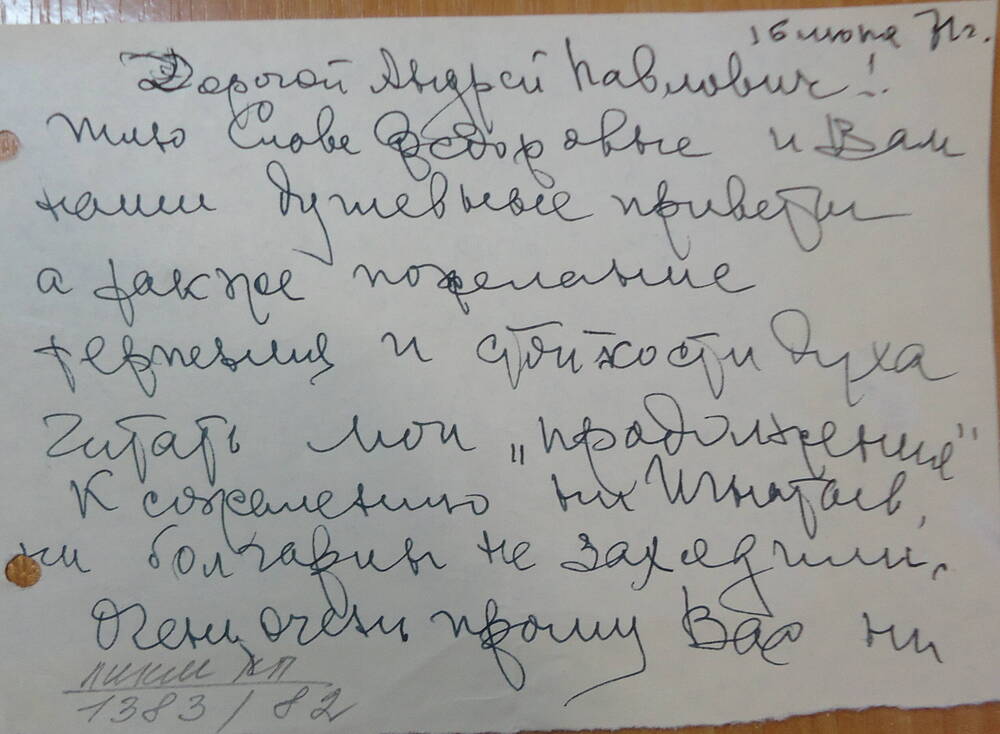 16 июня 71г.
Дорогой Андрей Павлович!
Шлю Славе Федоровне и Вам
наши душевные приветы
а также пожелание
терпения и стойкости духа
Читать мои „продолжения"
К сожалению ни Игнатьев,
ни болгарин не заходили.
Очень, очень прошу Вас ни
ПИКМ КП
1383/82